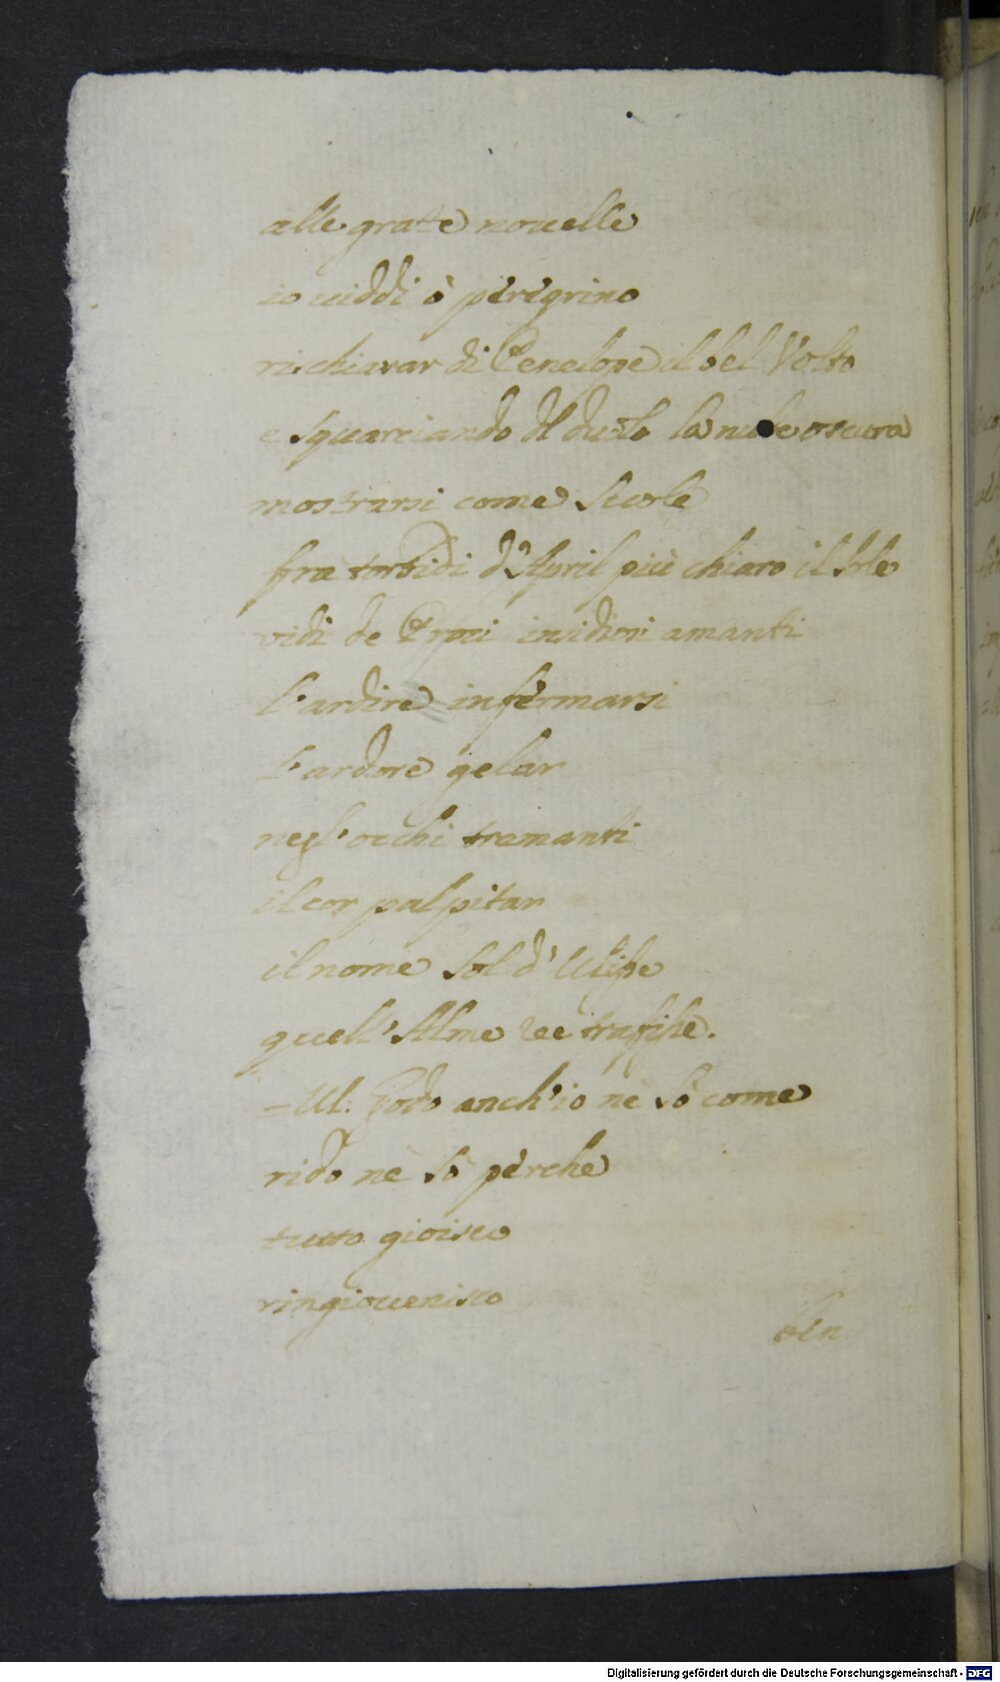 alle grate nouelle
io uiddi ò peregrino
rischiarar di Penelope il bel Volto
e squarciando del duolo la nube oscura
mostrarsi come suole
fra torbidi d'April più chiaro il sole
vidi de Proci insidiosi amanti
l'ardire infermarsi
l'ardore gelar
negl'occhi tremanti
il cor palpitar
il nome sol d'Ulisse
quell'Alme ree trafisse.
– Ul: Godo anch'io nè sò come
rido nè sò perche
tutto gioisco
ringiouenisco
ben
Digitalisierung gefördert durch die Deutsche Forschungsgemeinschaft - DFG